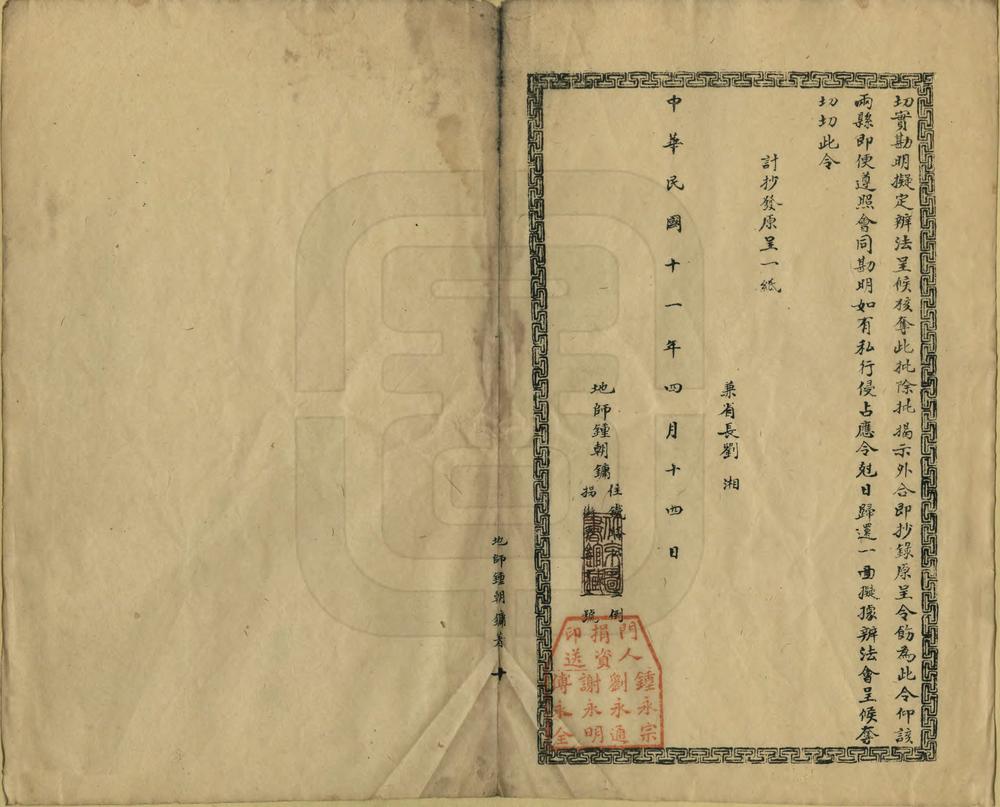 切實勘明擬定辦法呈候核奪此批除批揭示外合即抄錄原呈令飭為此令仰該
兩縣即便遵照會同勘明如有私行侵占應令尅日歸還一面擬據辦法會呈候奪
切切此令
計抄發原呈一紙
兼省長劉湘
中華民國十一年四月十四日
地師鍾朝鏞
住
側
揚
號
門人鍾永宗
劉永通
捐資謝永明
印送傅永全
地師鍾朝鏞著
十